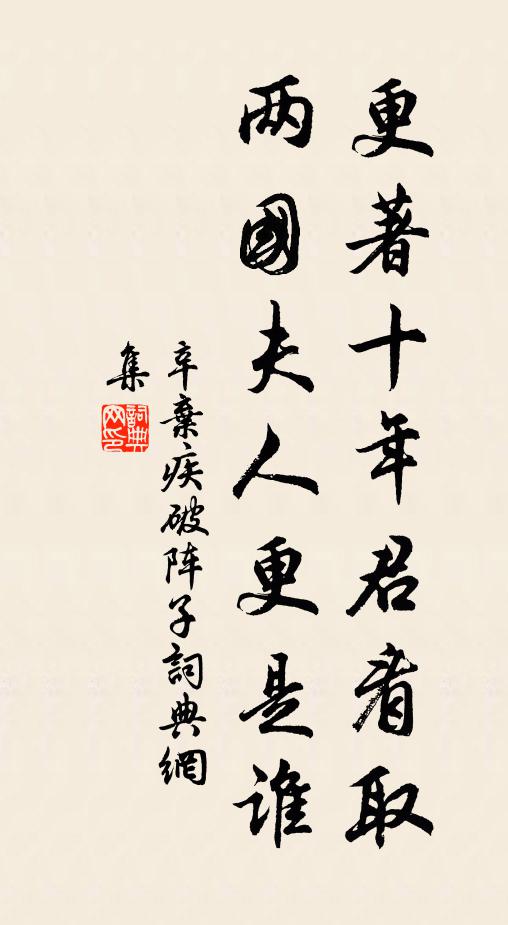 更著十年君看取
两國夫人更是谁
辛棄疾破阵子詞典網
集
詞典
网印